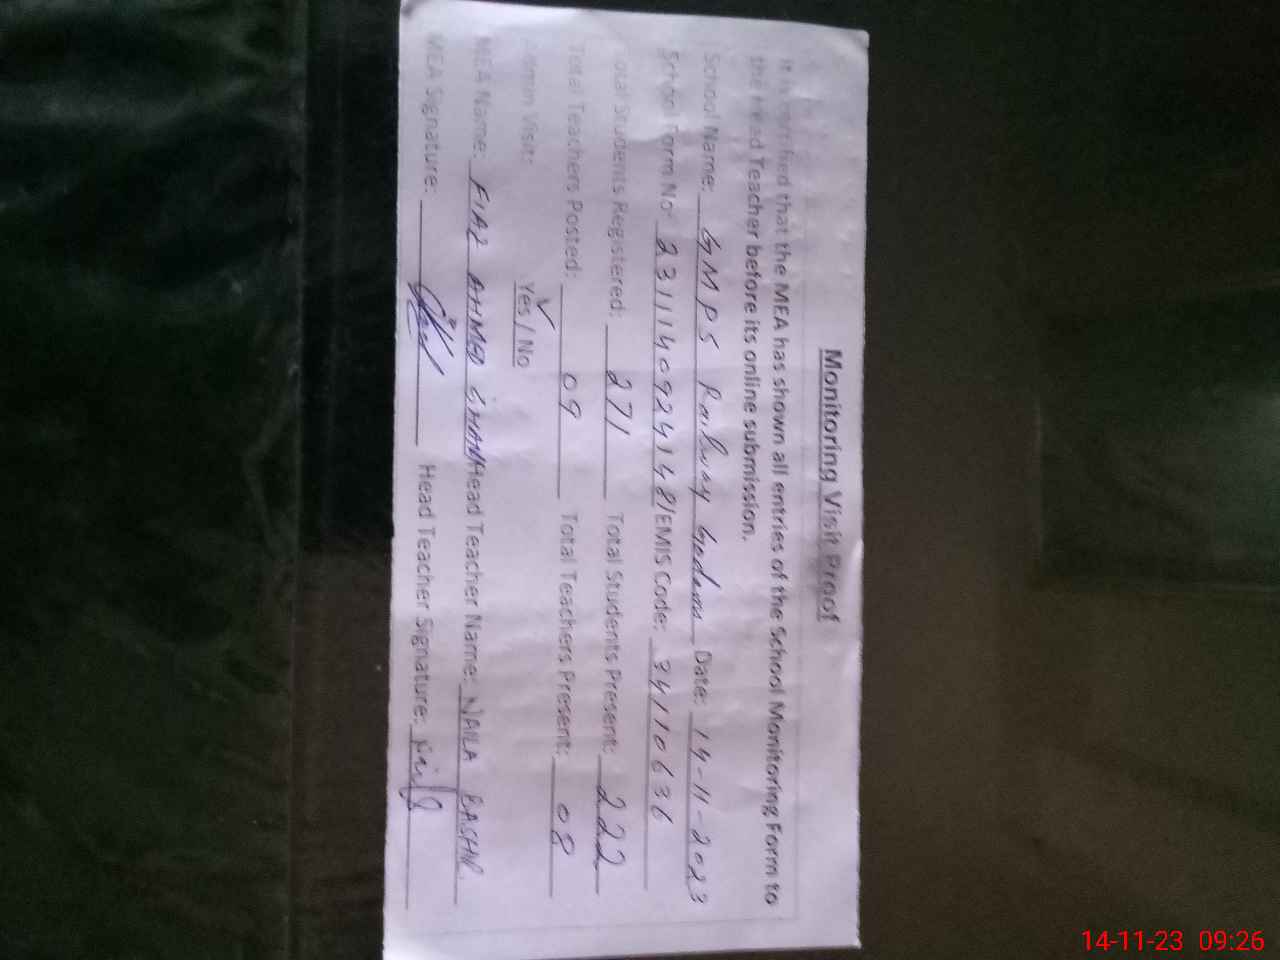 Monitoring Visit Proof
It is verified that the MEA has shown all entries of the School Monitoring Form to
the Head Teacher before its online submission.
School Name: GMPS Railway Godown Date: 14-11-2023
School Form No: 2311140924148/EMIS Code: 34110636
Total Students Registered: 271 Total Students Present: 222
Total Teachers Posted: 09 Total Teachers Present: 08
Admin Visit: Yes / No
MEA Name: FIAZ AHMED Head Teacher Name: NAILA BASHIR
MEA Signature: Head Teacher Signature:
14-11-23 09:26